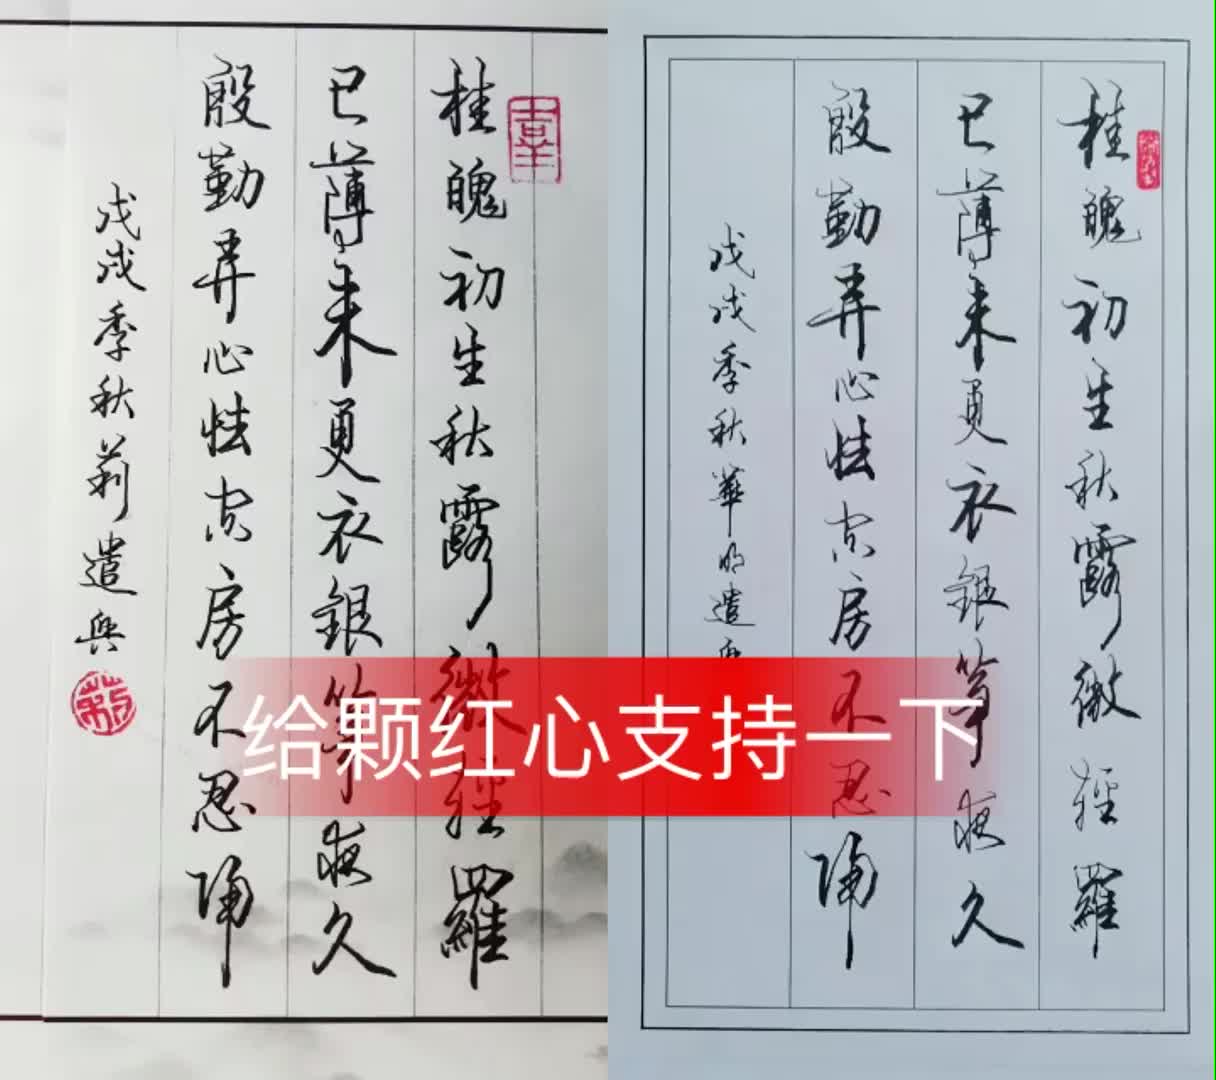 桂魄初生秋露微轻罗
已薄未更衣银筝夜久
殷勤弄心怯空房不忍归
戊戌季秋莉遣兴
喜
莉
桂魄初生秋露微轻罗
已薄未更衣银筝夜久
殷勤弄心怯空房不忍归
戊戌季秋华明遣兴
给颗红心支持一下